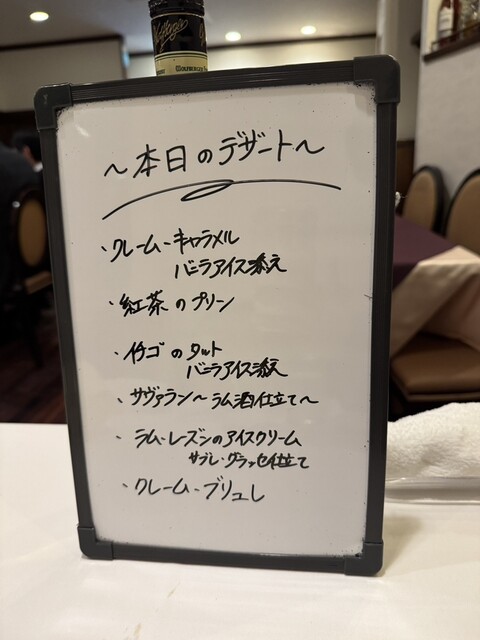 ～本日のデザート～
・クレーム・キャラメル
バニラアイス添え
・紅茶のプリン
・イチゴのタルト
バニラアイス添え
・サヴァラン～ラム酒仕立て～
・ラム・レーズンのアイスクリーム
サブレ・グラッセ仕立て
・クレーム・ブリュレ